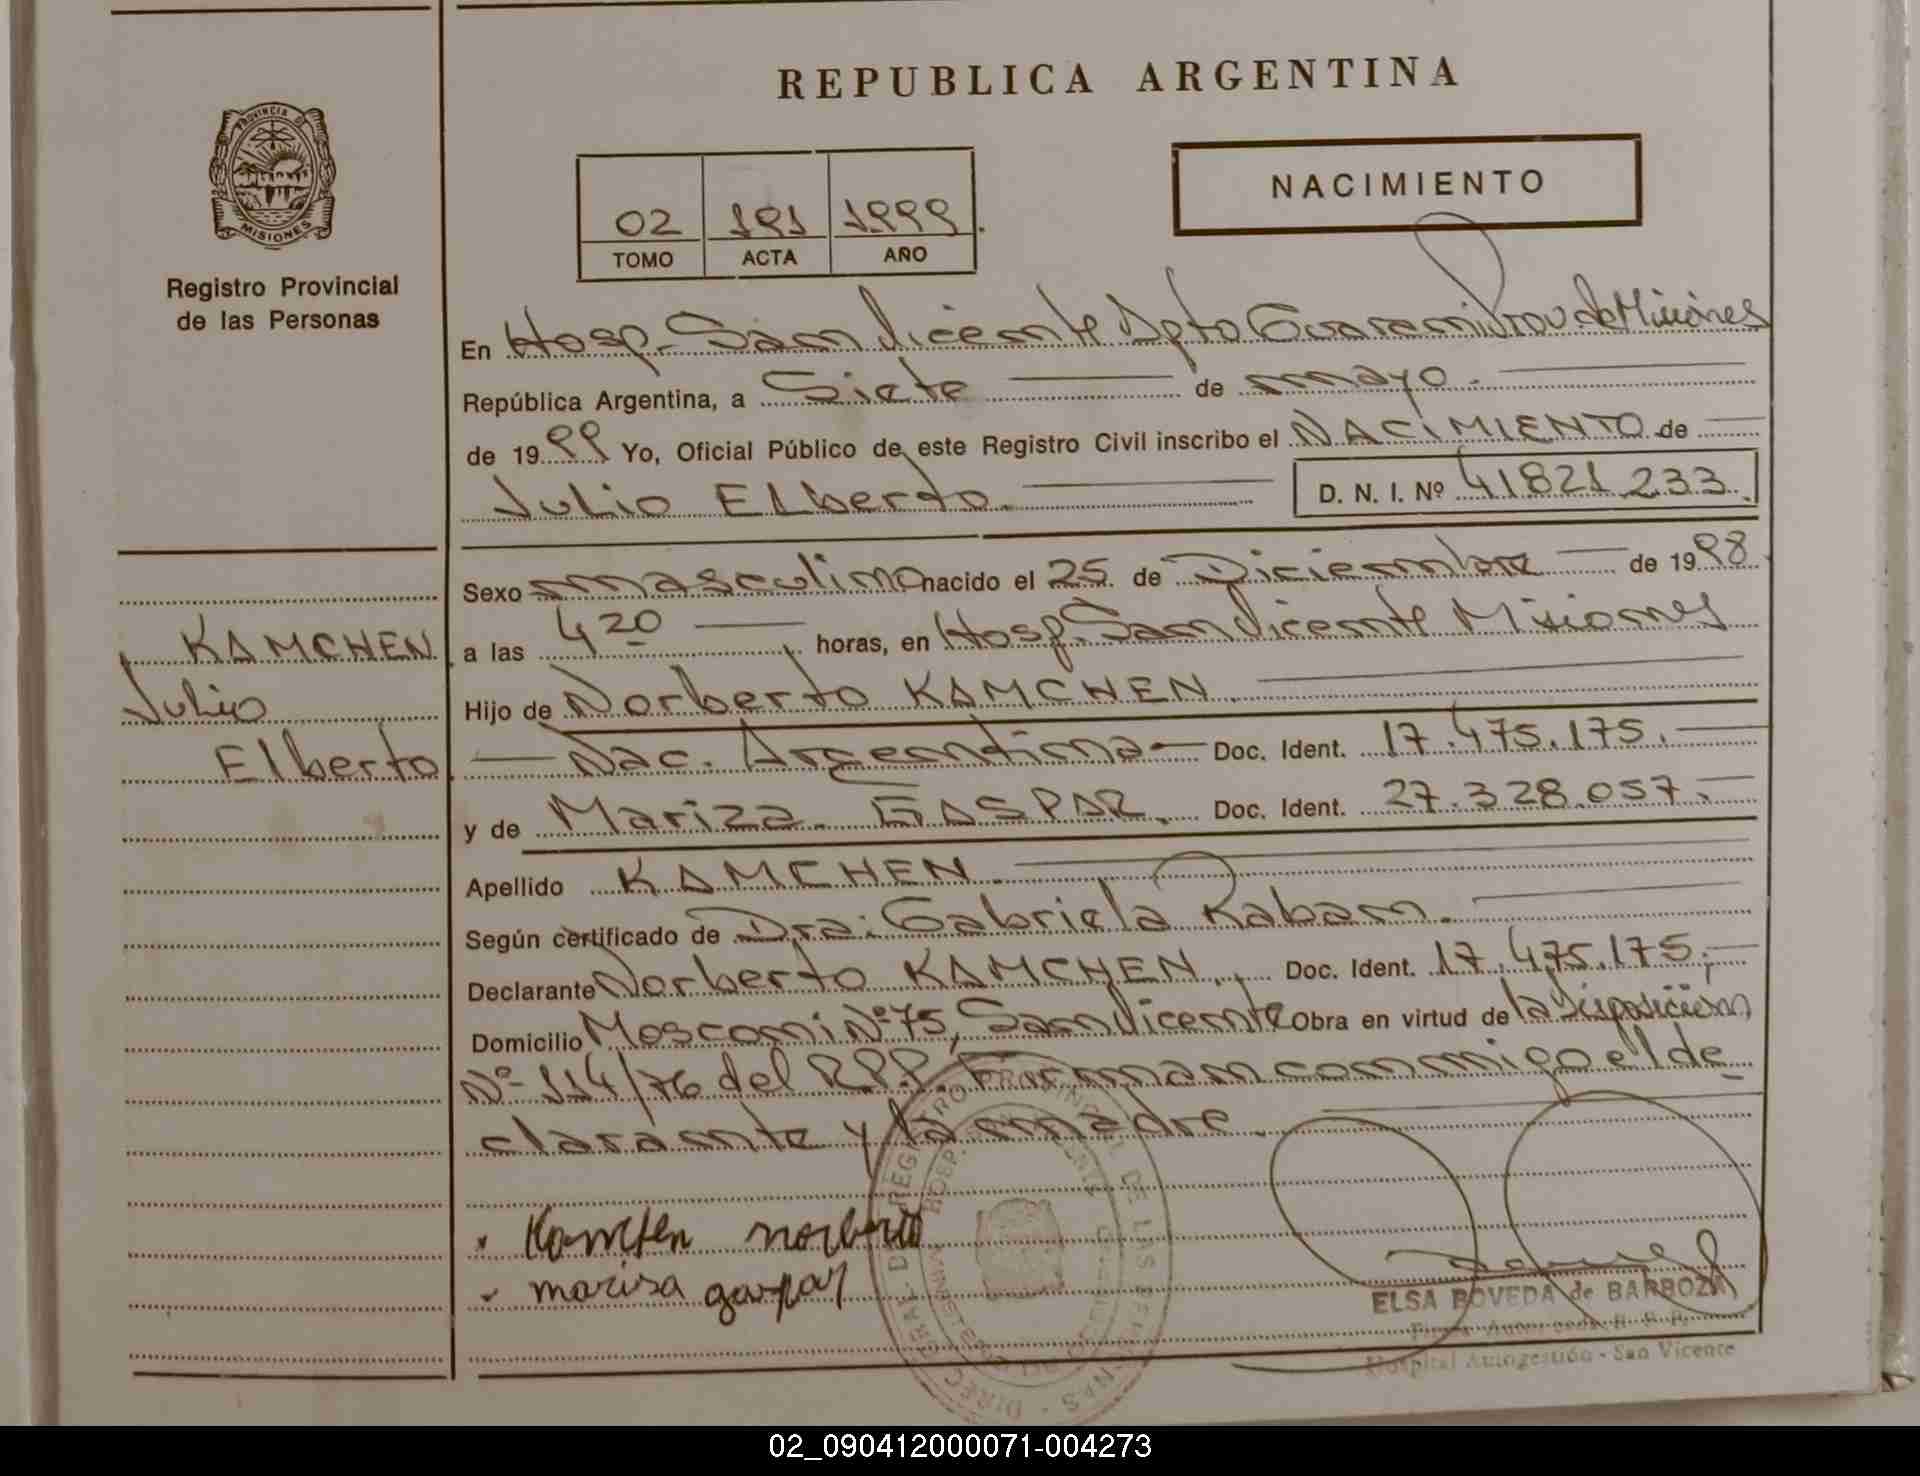 REPUBLICA ARGENTINA
PROVINCIA DE
MISIONES
Registro Provincial
de las Personas
02 191 1999
TOMO ACTA AÑO
NACIMIENTO
En Hosp. San Vicente Dpto Guarani Prov. de Misiones
República Argentina, a Siete de mayo.
de 1999 Yo, Oficial Público de este Registro Civil inscribo el NACIMIENTO de
Julio Elberto. D. N. I. Nº 41821233.
Sexo masculino nacido el 25 de Diciembre de 1998.
a las 4 20 horas, en Hosp. San Vicente Misiones
Hijo de Norberto KAMCHEN.
Nac. Argentina Doc. Ident. 17.475.175.
y de Mariza GASPAR. Doc. Ident. 27.328.057.
Apellido KAMCHEN.
Según certificado de Dra. Gabriela Raban.
Declarante Norberto KAMCHEN, Doc. Ident. 17.475.175,
Domicilio Mosconi Nº 75, San Vicente Obra en virtud de la Disposición
Nº 114/76 del R.P.P. Firman conmigo el de
clarante y la madre.
KAMCHEN
Julio
Elberto.
Kamchen norberto
marisa gaspar
ELSA BOVEDA de BARBOZA
Hospital Autogestión - San Vicente
02_090412000071-004273